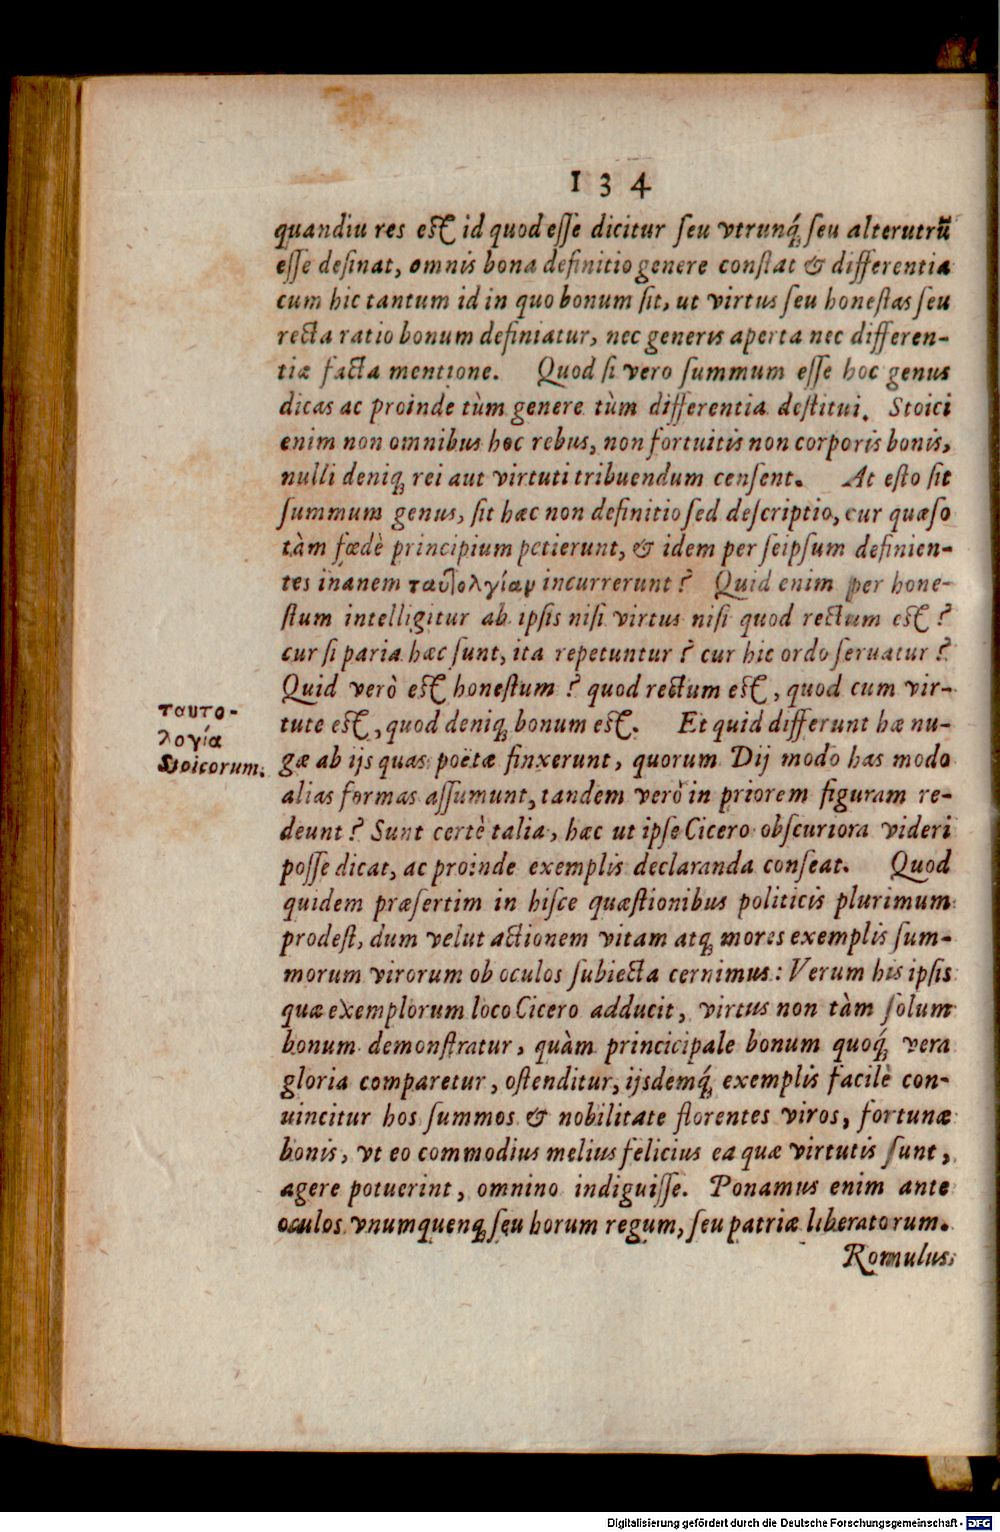 134
quandiu res est id quod esse dicitur seu vtrunq́; seu alterutrũ
esse desinat, omnis bona definitio genere constat & differentia
cum hic tantum id in quo bonum sit, ut virtus seu honestas seu
recta ratio bonum definiatur, nec generis aperta nec differen-
tiæ facta mentione. Quod si vero summum esse hoc genus
dicas ac proinde tùm genere tùm differentia destitui. Stoici
enim non omnibus hoc rebus, non fortuitis non corporis bonis,
nulli deniq; rei aut virtuti tribuendum censent. At esto sit
summum genus, sit hæc non definitio sed descriptio, cur quæso
tàm fœdè principium petierunt, & idem per seipsum definien-
tes inanem ταυτολγίαν incurrerunt? Quid enim per hone-
stum intelligitur ab ipsis nisi virtus nisi quod rectum est?
cur si paria hæc sunt, ita repetuntur? cur hic ordo seruatur?
Quid verò est honestum? quod rectum est, quod cum vir-
tute est, quod deniq; bonum est. Et quid differunt hæ nu-
gæ ab ijs quas poëtæ finxerunt, quorum Dij modò has modo
alias formas assumunt, tandem verò in priorem figuram re-
deunt? Sunt certè talia, hæc ut ipse Cicero obscuriora videri
posse dicat, ac proinde exemplis declaranda censeat. Quod
quidem præsertim in hisce quæstionibus politicis plurimum
prodest, dum velut actionem vitam atq; mores exemplis sum-
morum virorum ob oculos subiecta cernimus: Verum his ipsis
quæ exemplorum loco Cicero adducit, virtus non tàm solum
bonum demonstratur, quàm princicipale bonum quoq́; vera
gloria comparetur, ostenditur, ijsdemq́; exemplis facilè con-
uincitur hos summos & nobilitate florentes viros, fortunæ
bonis, vt eo commodius melius felicius ea quæ virtutis sunt,
agere potuerint, omnino indiguisse. Ponamus enim ante
oculos vnumquenq; seu horum regum, seu patriæ liberatorum.
Romulus
ταυτο-
λογία
Stoicorum.
Digitalisierung gefördert durch die Deutsche Forschungsgemeinschaft - DFG